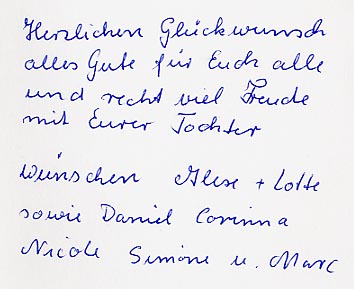 Herzlichen Glückwunsch
alles Gute für Euch alle
und recht viel Freude
mit Eurer Tochter
wünschen Ilese + Lotte
sowie Daniel Corinna
Nicole Simone u. Marc